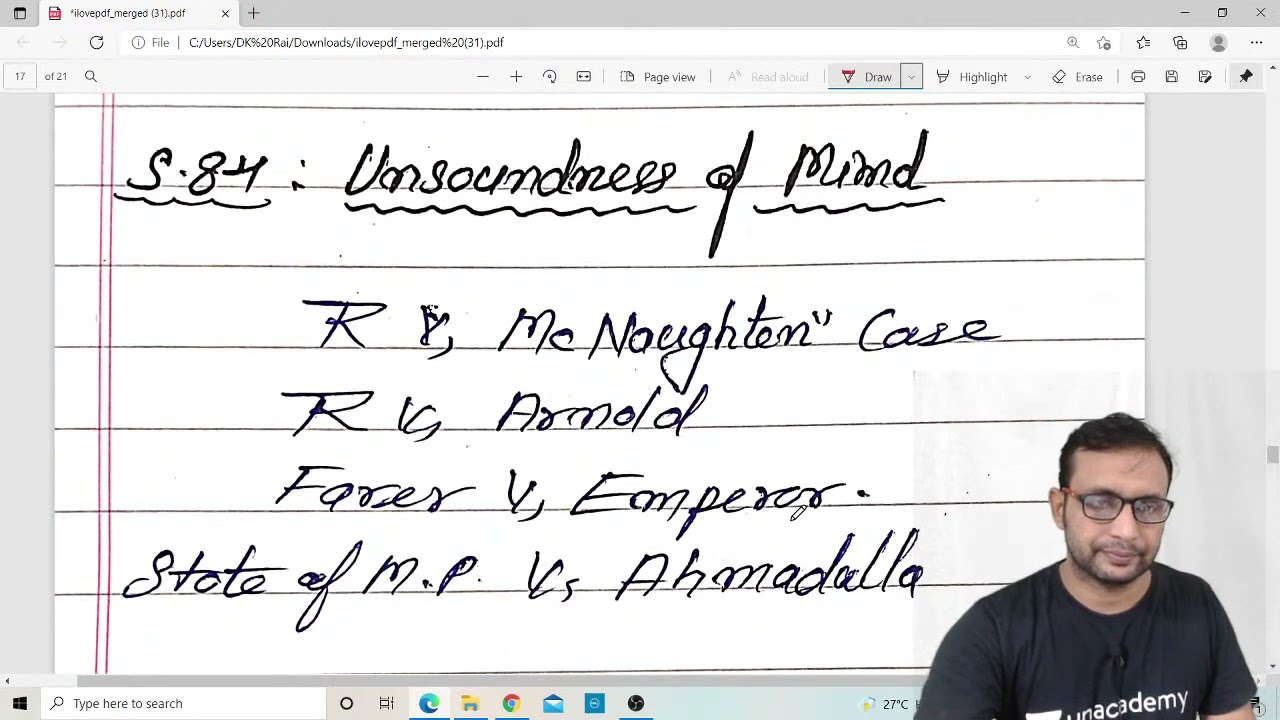 *ilovepdf_merged (31).pdf
File C:/Users/DK%20Rai/Downloads/ilovepdf_merged%20(31).pdf
17 of 21 Page view Read aloud Draw Highlight Erase
S.84 : Unsoundness of Mind
R V, McNaughten" Case
R V, Arnold
V, Emperor.
State of M.P. V, Ahmadulla
unacademy
Type here to search 27°C